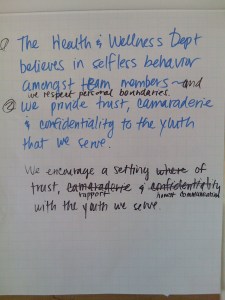 ① The Health & Wellness Dept
believes in selfless behavior
amongst team members ~ and
we respect personal boundaries.
② We provide trust, camaraderie
& confidentiality to the youth
that we serve.
We encourage a setting where of
trust, camaraderie & confidentiality
support honest communication
with the youth we serve.